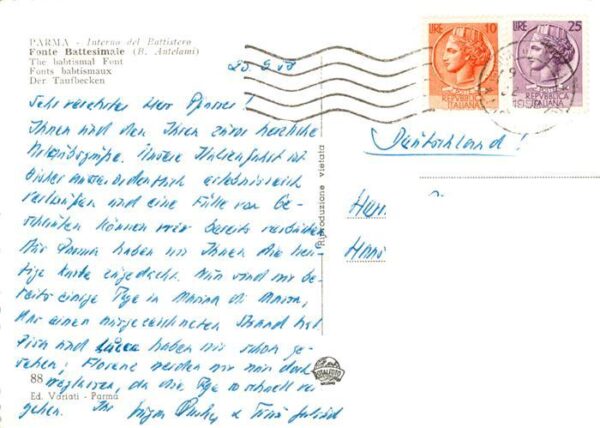 PARMA - Interno del Battistero
Fonte Battesimale (B. Antelami)
The babtismal Font
Fonts babtismaux
Der Taufbecken
Sehr verehrter Herr
Ihnen und den Ihren zuvor herzliche
Unsere Italienfahrt ist
bisher ausserordentlich erlebnisreich
verlaufen und eine Fülle von Ge-
können wir bereits verbuchen
Mit Parma haben wir Ihnen die heu-
tige Karte zugedacht. Nun sind wir be-
reits einige Tage in Marina di Massa,
das einen ausgezeichneten Strand hat
Pisa und Lucca haben wir schon ge-
sehen; Florenz werden wir nun doch
weglassen, da die Tage so schnell ver-
gehen. Ihr
88
Ed. Variati - Parma
Riproduzione vietata
LIRE 10
POSTE
REPVBBLICA
ITALIANA
LIRE 25
POSTE
REPVBBLICA
ITALIANA
Deutschland!
Herrn
Hans